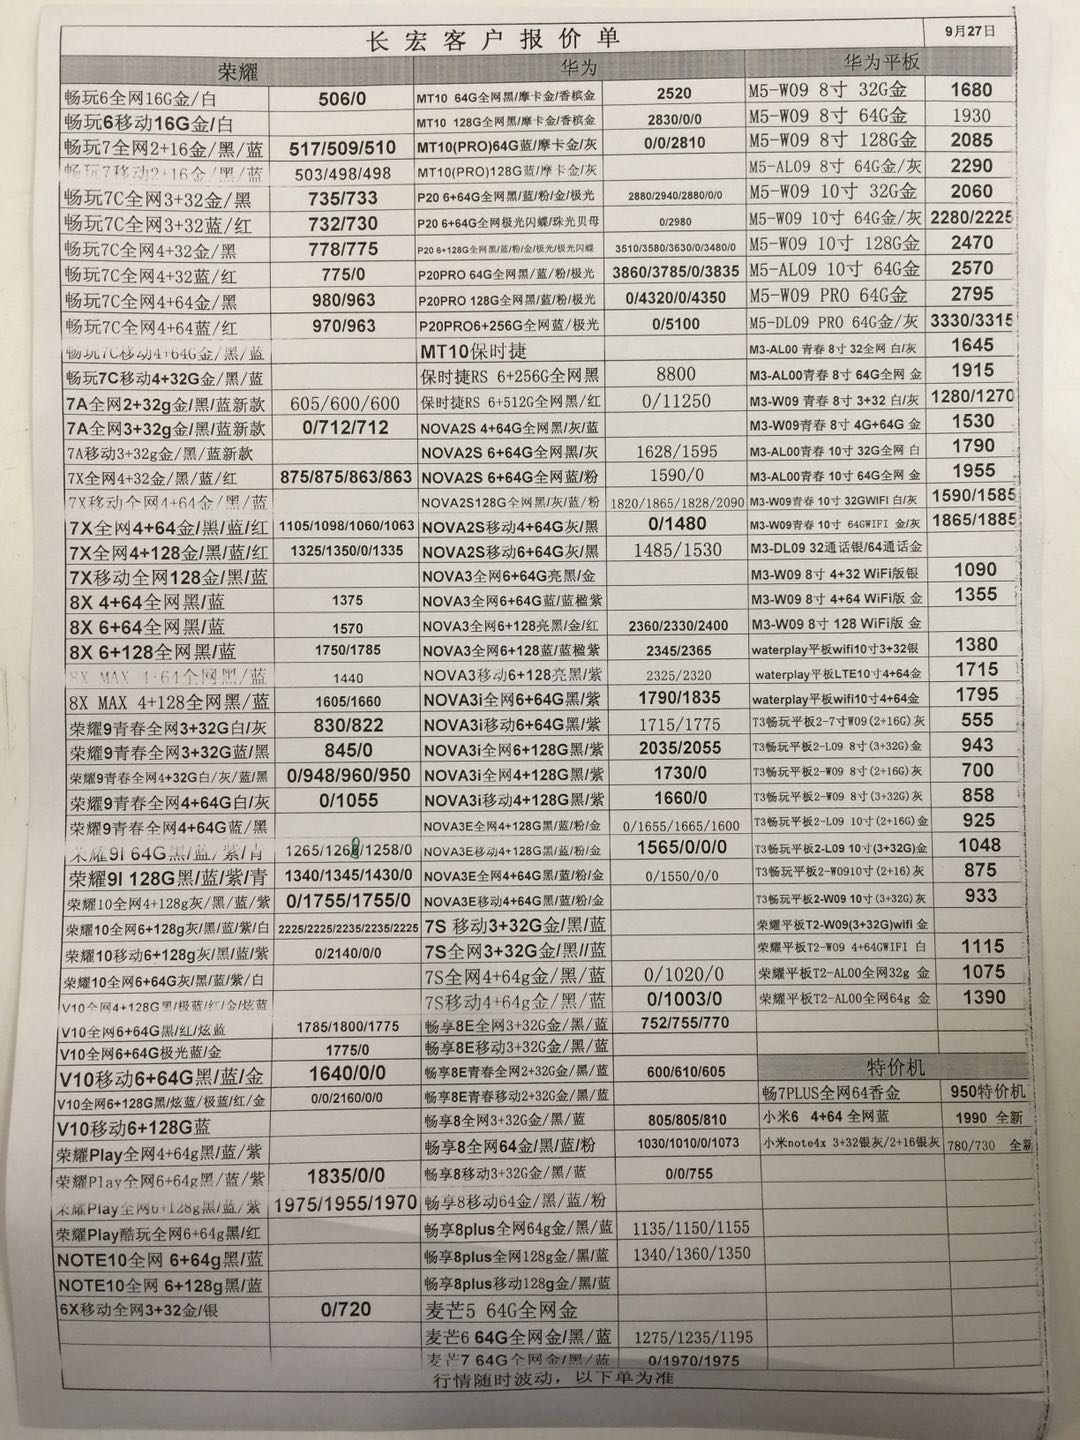 长宏客户报价单 9月27日
荣耀 华为 华为平板
畅玩6全网16G金/白 506/0 MT10 64G全网黑/摩卡金/香槟金 2520 M5-W09 8寸 32G金 1680
畅玩6移动16G金/白 MT10 128G全网黑/摩卡金/香槟金 2830/0/0 M5-W09 8寸 64G金 1930
畅玩7全网2+16金/黑/蓝 517/509/510 MT10(PRO)64G蓝/摩卡金/灰 0/0/2810 M5-W09 8寸 128G金 2085
畅玩7移动2+16金/黑/蓝 503/498/498 MT10(PRO)128G蓝/摩卡金/灰 M5-AL09 8寸 64G金/灰 2290
畅玩7C全网3+32金/黑 735/733 P20 6+64G全网黑/蓝/粉/金/极光 2880/2940/2880/0/0 M5-W09 10寸 32G金 2060
畅玩7C全网3+32蓝/红 732/730 P20 6+64G全网极光闪蝶/珠光贝母 0/2980 M5-W09 10寸 64G金/灰 2280/2225
畅玩7C全网4+32金/黑 778/775 P20 6+128G全网黑/蓝/粉/金/极光/极光闪蝶 3510/3580/3630/0/3480/0 M5-W09 10寸 128G金 2470
畅玩7C全网4+32蓝/红 775/0 P20PRO 64G全网黑/蓝/粉/极光 3860/3785/0/3835 M5-AL09 10寸 64G金 2570
畅玩7C全网4+64金/黑 980/963 P20PRO 128G全网黑/蓝/粉/极光 0/4320/0/4350 M5-W09 PRO 64G金 2795
畅玩7C全网4+64蓝/红 970/963 P20PRO6+256G全网蓝/极光 0/5100 M5-DL09 PRO 64G金/灰 3330/3315
畅玩7C移动4+64G金/黑/蓝 MT10保时捷 M3-AL00 青春 8寸 32全网 白/灰 1645
畅玩7C移动4+32G金/黑/蓝 保时捷RS 6+256G全网黑 8800 M3-AL00青春 8寸 64G全网 金 1915
7A全网2+32g金/黑/蓝新款 605/600/600 保时捷RS 6+512G全网黑/红 0/11250 M3-W09 青春 8寸 3+32 白/灰 1280/1270
7A全网3+32g金/黑/蓝新款 0/712/712 NOVA2S 4+64G全网黑/灰/蓝 M3-W09青春 8寸 4G+64G 金 1530
7A移动3+32g金/黑/蓝新款 NOVA2S 6+64G全网黑/灰 1628/1595 M3-AL00青春 10寸 32G全网 白 1790
7X全网4+32金/黑/蓝/红 875/875/863/863 NOVA2S 6+64G全网蓝/粉 1590/0 M3-AL00青春 10寸 64G全网 金 1955
7X移动全网4+64金/黑/蓝 NOVA2S128G全网黑/灰/蓝/粉 1820/1865/1828/2090 M3-W09青春 10寸 32GWIFI 白/灰 1590/1585
7X全网4+64金/黑/蓝/红 1105/1098/1060/1063 NOVA2S移动4+64G灰/黑 0/1480 M3-W09青春 10寸 64GWIFI 金/灰 1865/1885
7X全网4+128金/黑/蓝/红 1325/1350/0/1335 NOVA2S移动6+64G灰/黑 1485/1530 M3-DL09 32通话银/64通话金
7X移动全网128金/黑/蓝 NOVA3全网6+64G亮黑/金 M3-W09 8寸 4+32 WiFi版银 1090
8X 4+64全网黑/蓝 1375 NOVA3全网6+64G蓝/蓝楹紫 M3-W09 8寸 4+64 WiFi版 金 1355
8X 6+64全网黑/蓝 1570 NOVA3全网6+128亮黑/金/红 2360/2330/2400 M3-W09 8寸 128 WiFi版 金
8X 6+128全网黑/蓝 1750/1785 NOVA3全网6+128蓝/蓝楹紫 2345/2365 waterplay平板wifi10寸3+32银 1380
8X MAX 4+64全网黑/蓝 1440 NOVA3移动6+128亮黑/紫 2325/2320 waterplay平板LTE10寸4+64金 1715
8X MAX 4+128全网黑/蓝 1605/1660 NOVA3i全网6+64G黑/紫 1790/1835 waterplay平板wifi10寸4+64金 1795
荣耀9青春全网3+32G白/灰 830/822 NOVA3i移动6+64G黑/紫 1715/1775 T3畅玩平板2-7寸W09(2+16G)灰 555
荣耀9青春全网3+32G蓝/黑 845/0 NOVA3i全网6+128G黑/紫 2035/2055 T3畅玩平板2-L09 8寸(3+32G)金 943
荣耀9青春全网4+32G白/灰/蓝/黑 0/948/960/950 NOVA3i全网4+128G黑/紫 1730/0 T3畅玩平板2-W09 8寸(2+16G)灰 700
荣耀9青春全网4+64G白/灰 0/1055 NOVA3i移动4+128G黑/紫 1660/0 T3畅玩平板2-W09 8寸(3+32G)灰 858
荣耀9青春全网4+64G蓝/黑 NOVA3E全网4+128G黑/蓝/粉/金 0/1655/1665/1600 T3畅玩平板2-L09 10寸(2+16G)金 925
荣耀9I 64G黑/蓝/紫/青 1265/1268/1258/0 NOVA3E移动4+128G黑/蓝/粉/金 1565/0/0/0 T3畅玩平板2-L09 10寸(3+32G)金 1048
荣耀9I 128G黑/蓝/紫/青 1340/1345/1430/0 NOVA3E全网4+64G黑/蓝/粉/金 0/1550/0/0 T3畅玩平板2-W0910寸(2+16)灰 875
荣耀10全网4+128g灰/黑/蓝/紫 0/1755/1755/0 NOVA3E移动4+64G黑/蓝/粉/金 T3畅玩平板2-W09 10寸(3+32G)灰 933
荣耀10全网6+128g灰/黑/蓝/紫/白 2225/2225/2235/2235/2225 7S 移动3+32G金/黑/蓝 荣耀平板T2-W09(3+32G)wifi 金
荣耀10移动6+128g灰/黑/蓝/紫 0/2140/0/0 7S全网3+32G金/黑//蓝 荣耀平板T2-W09 4+64GWIFI 白 1115
荣耀10全网6+64G灰/黑/蓝/紫/白 7S全网4+64g金/黑/蓝 0/1020/0 荣耀平板T2-AL00全网32g 金 1075
V10全网4+128G黑/极蓝/红/金/炫蓝 7S移动4+64g金/黑/蓝 0/1003/0 荣耀平板T2-AL00全网64g 金 1390
V10全网6+64G黑/红/炫蓝 1785/1800/1775 畅享8E全网3+32G金/黑/蓝 752/755/770
V10全网6+64G极光蓝/金 1775/0 畅享8E移动3+32G金/黑/蓝
V10移动6+64G黑/蓝/金 1640/0/0 畅享8E青春全网2+32G金/黑/蓝 600/610/605 特价机
V10全网6+128G黑/炫蓝/极蓝/红/金 0/0/2160/0/0 畅享8E青春移动2+32G金/黑/蓝 畅7PLUS全网64香金 950特价机
V10移动6+128G蓝 畅享8全网3+32G金/黑/蓝 805/805/810 小米6 4+64 全网蓝 1990 全新
荣耀Play全网4+64g黑/蓝/紫 畅享8全网64金/黑/蓝/粉 1030/1010/0/1073 小米note4x 3+32银灰/2+16银灰 780/730 全新
荣耀Play全网6+64g黑/蓝/紫 1835/0/0 畅享8移动3+32G金/黑/蓝 0/0/755
荣耀Play全网6+128g黑/蓝/紫 1975/1955/1970 畅享8移动64金/黑/蓝/粉
荣耀Play酷玩全网6+64g黑/红 畅享8plus全网64g金/黑/蓝 1135/1150/1155
NOTE10全网 6+64g黑/蓝 畅享8plus全网128g金/黑/蓝 1340/1360/1350
NOTE10全网 6+128g黑/蓝 畅享8plus移动128g金/黑/蓝
6X移动全网3+32金/银 0/720 麦芒5 64G全网金
麦芒6 64G全网金/黑/蓝 1275/1235/1195
麦芒7 64G全网金/黑/蓝 0/1970/1975
行情随时波动，以下单为准